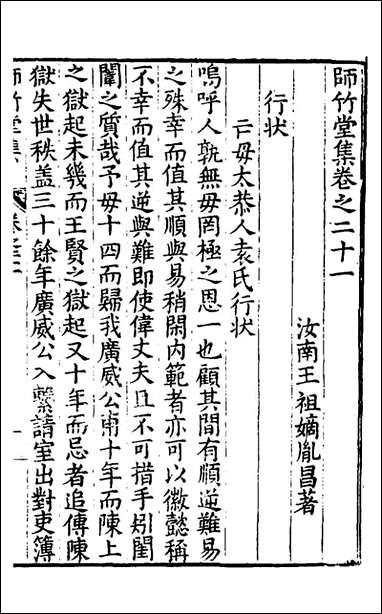 師竹堂集卷之二十一
汝南王祖嫡胤昌著
行状
亡母太恭人袁氏行状
嗚呼人孰無母罔極之恩一也顧其間有順逆難易
之殊幸而值其順與易稍閑内範者亦可以徽懿稱
不幸而值其逆與難即使偉丈夫且不可措手矧閨
闈之質哉予母十四而歸我廣威公甫十年而陳上
之獄起未幾而王賢之獄起又十年而忌者追傳陳
獄失世秩盖三十餘年廣威公入繫請室出對吏簿
師竹堂集